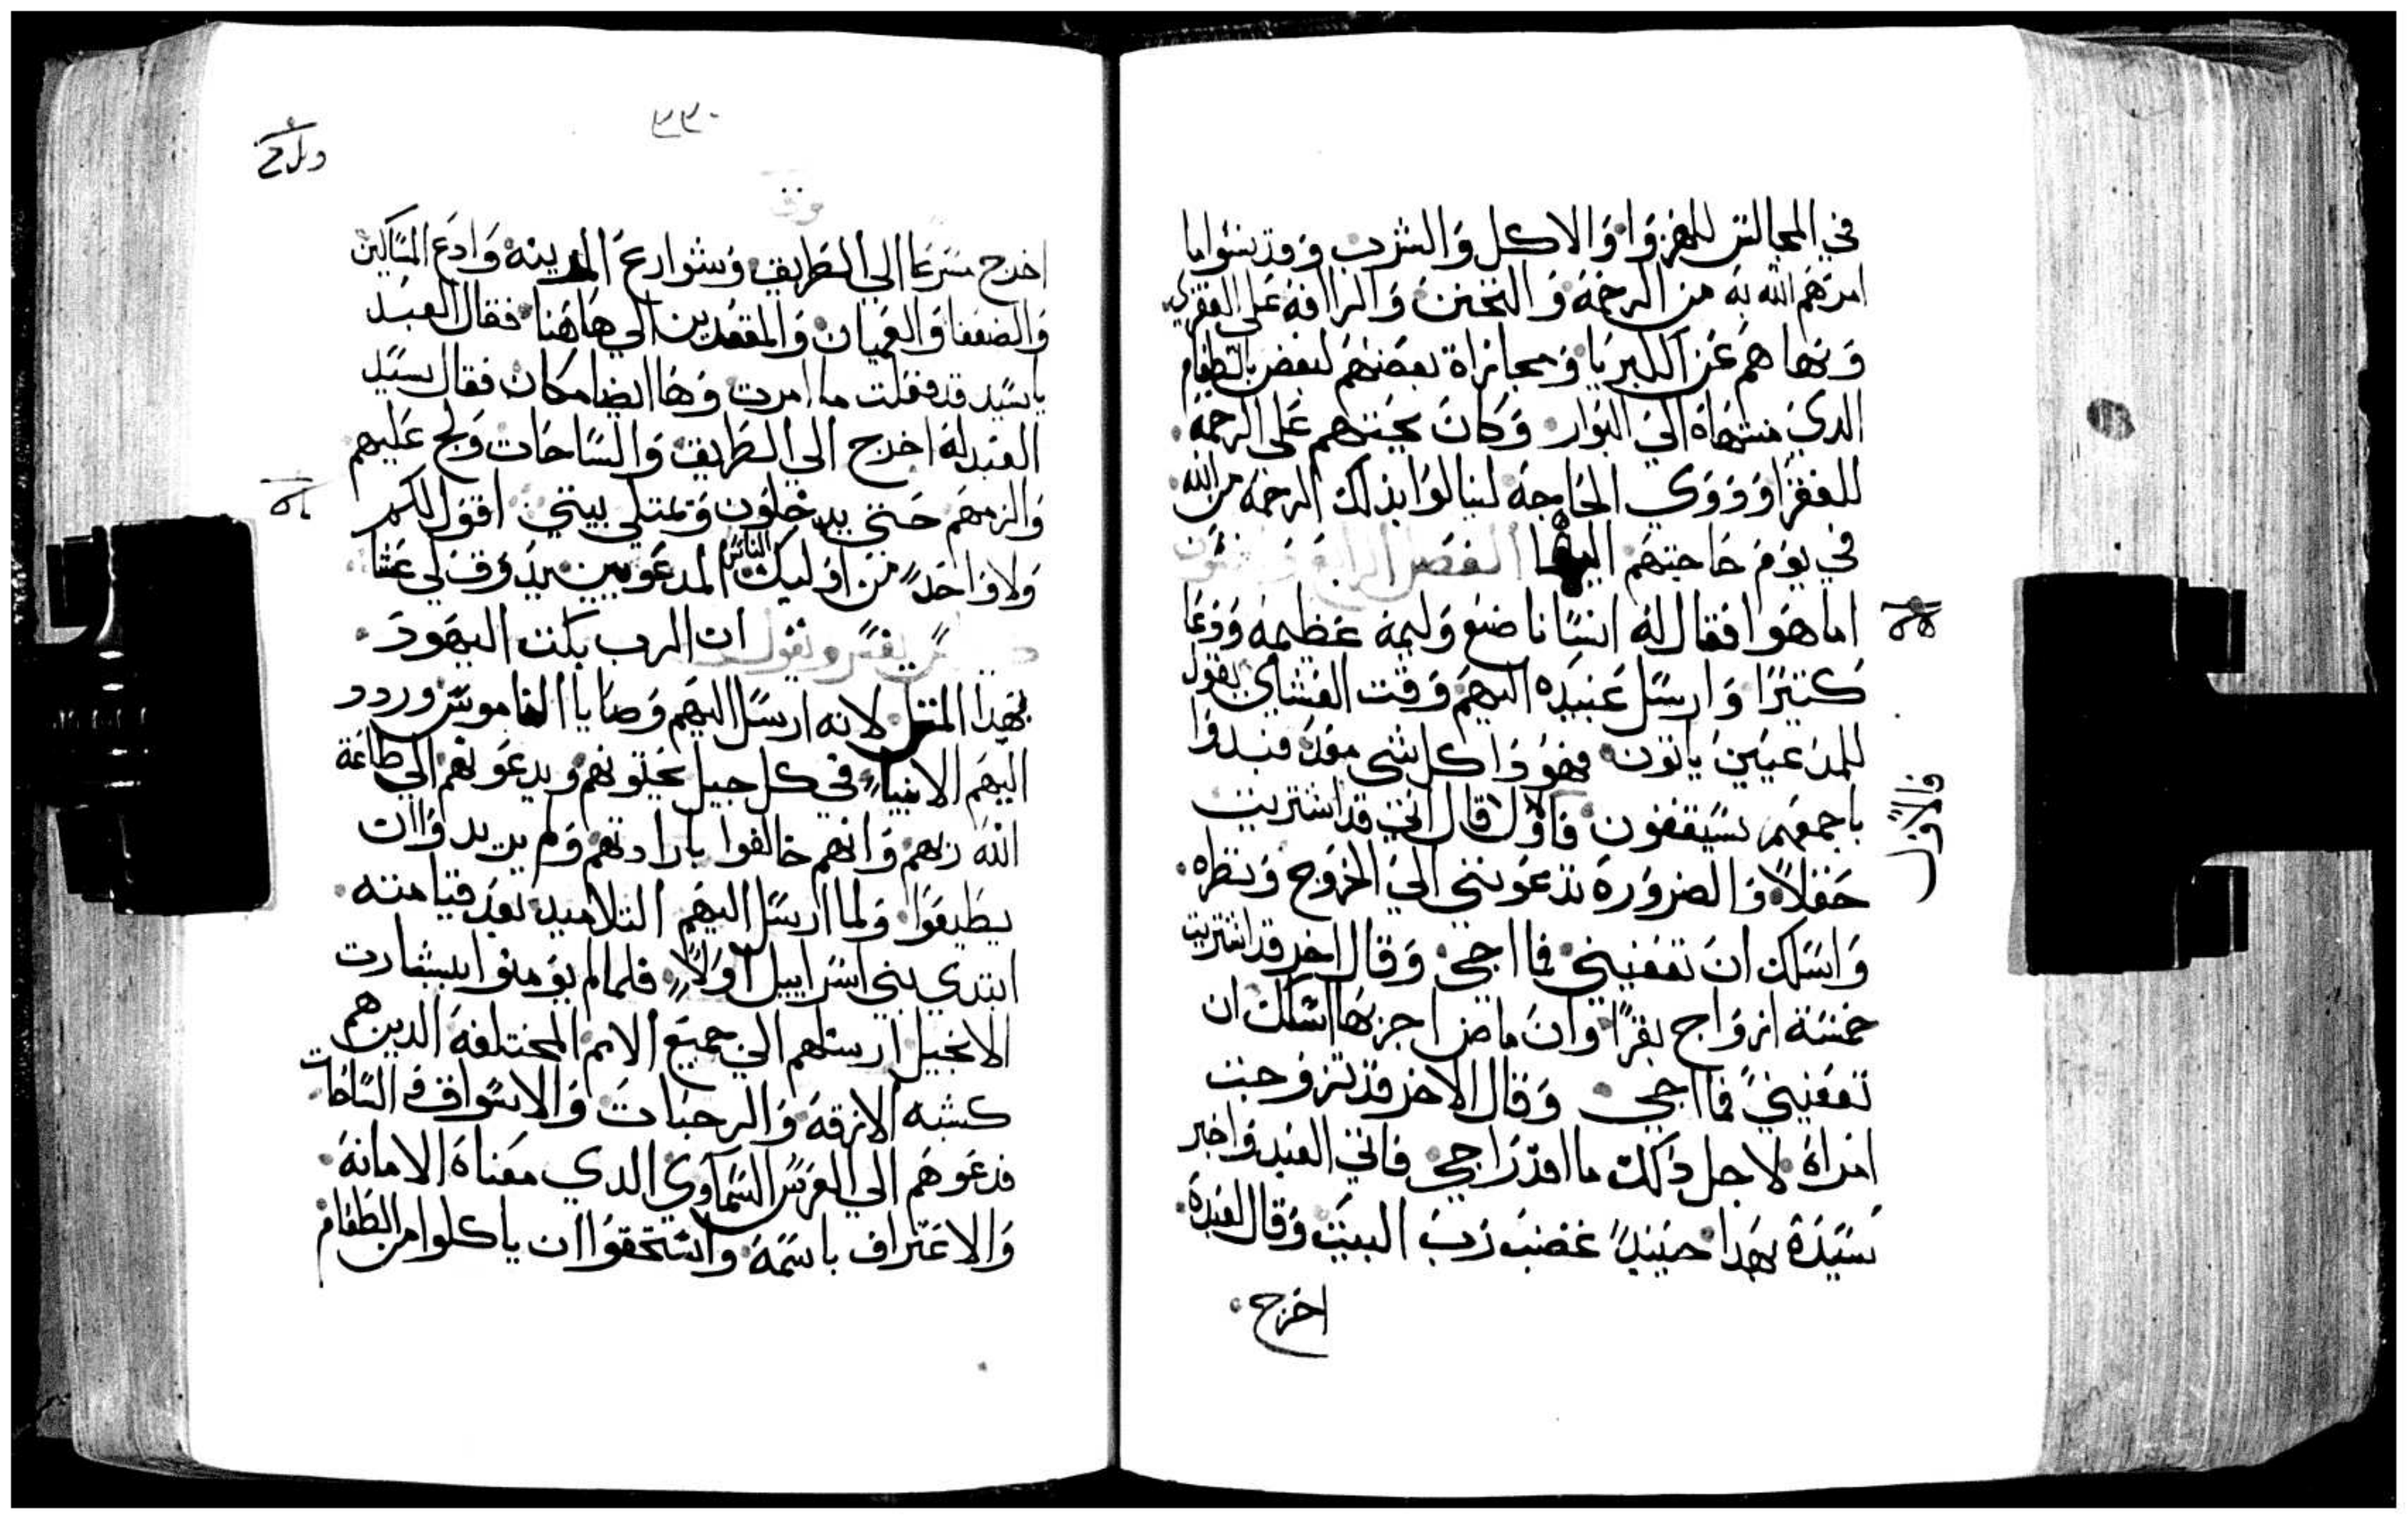 في المجالس للهزوا والاكل والشرب وقد نسوا ما
امرهم الله به من الرحمة والتحنن والرافة على الفقرا
ونهاهم عن الكبريا ومجازاة بعضهم لبعض بالطعام
الدي منتهاه الي البوار وكان يحتهم على الرحمة
للفقرا وذوي الحاجة لينالوا بذلك الرحمة من الله
في يوم حاجتهم اليها الفصل الرابع
اما هوا فقال له انسانا صنع وليمة عظيمة ودعا
كتيرا وارسل عبيده اليهم وقت العشاي يقول
للمدعيين ياتون فهودا كل شي معد فبدوا
باجمعهم يستعفون فالاول قال انني قد اشتريت
فالاول
حقلا والضرورة تدعوني الي الخروج ونظره
واسلك ان تعفيني فما اجي وقال اخر قد اشتريت
خمسة ازواج بقرا وان ماض اجربها اسلك ان
تعفيني فما اجي وقال الاخر قد تزوجت
امراة لاجل دلك ما اقدر اجي فاتي العبد واخبر
سيده بهدا حينيد غضب رب البيت وقال لعبده
اخرج
٢٢٠
اخرج مسرعا الي الطريق وشوارع المدينة وادع المساكين
والضعفا والعميان والمقعدين الي هاهنا فقال العبد
يا سيد قد فعلت ما امرت وها ايضا مكان فقال سيد
العبد له اخرج الي الطريق والساحات ولج عليهم
والزمهم حتي يدخلون ويمتلي بيتي اقول لكم
ولا واحد من اوليك الناس المدعويين يدوق لي عشا
يفسر ويقول ان الرب بكت اليهود
بهدا المتل لانه ارسل اليهم وصايا الناموس وردد
اليهم الانبيا في كل جيل يحتونهم ويدعونهم الي طاعة
الله ربهم وانهم خالفوا بارادتهم ولم يريدوا ان
يطيعوا ولما ارسل اليهم التلاميد بعد قيامته
ابتدي ببني اسراييل اولا فلما لم يومنوا ببشارت
الانجيل ارسلهم الي جميع الامم المختلفة الدين هم
كشبه الازقة والرحبات والاسواق والساحات
فدعوهم الي العرس السماوي الدي معناه الامانة
والاعتراف باسمه واستحقوا ان ياكلوا من الطعام